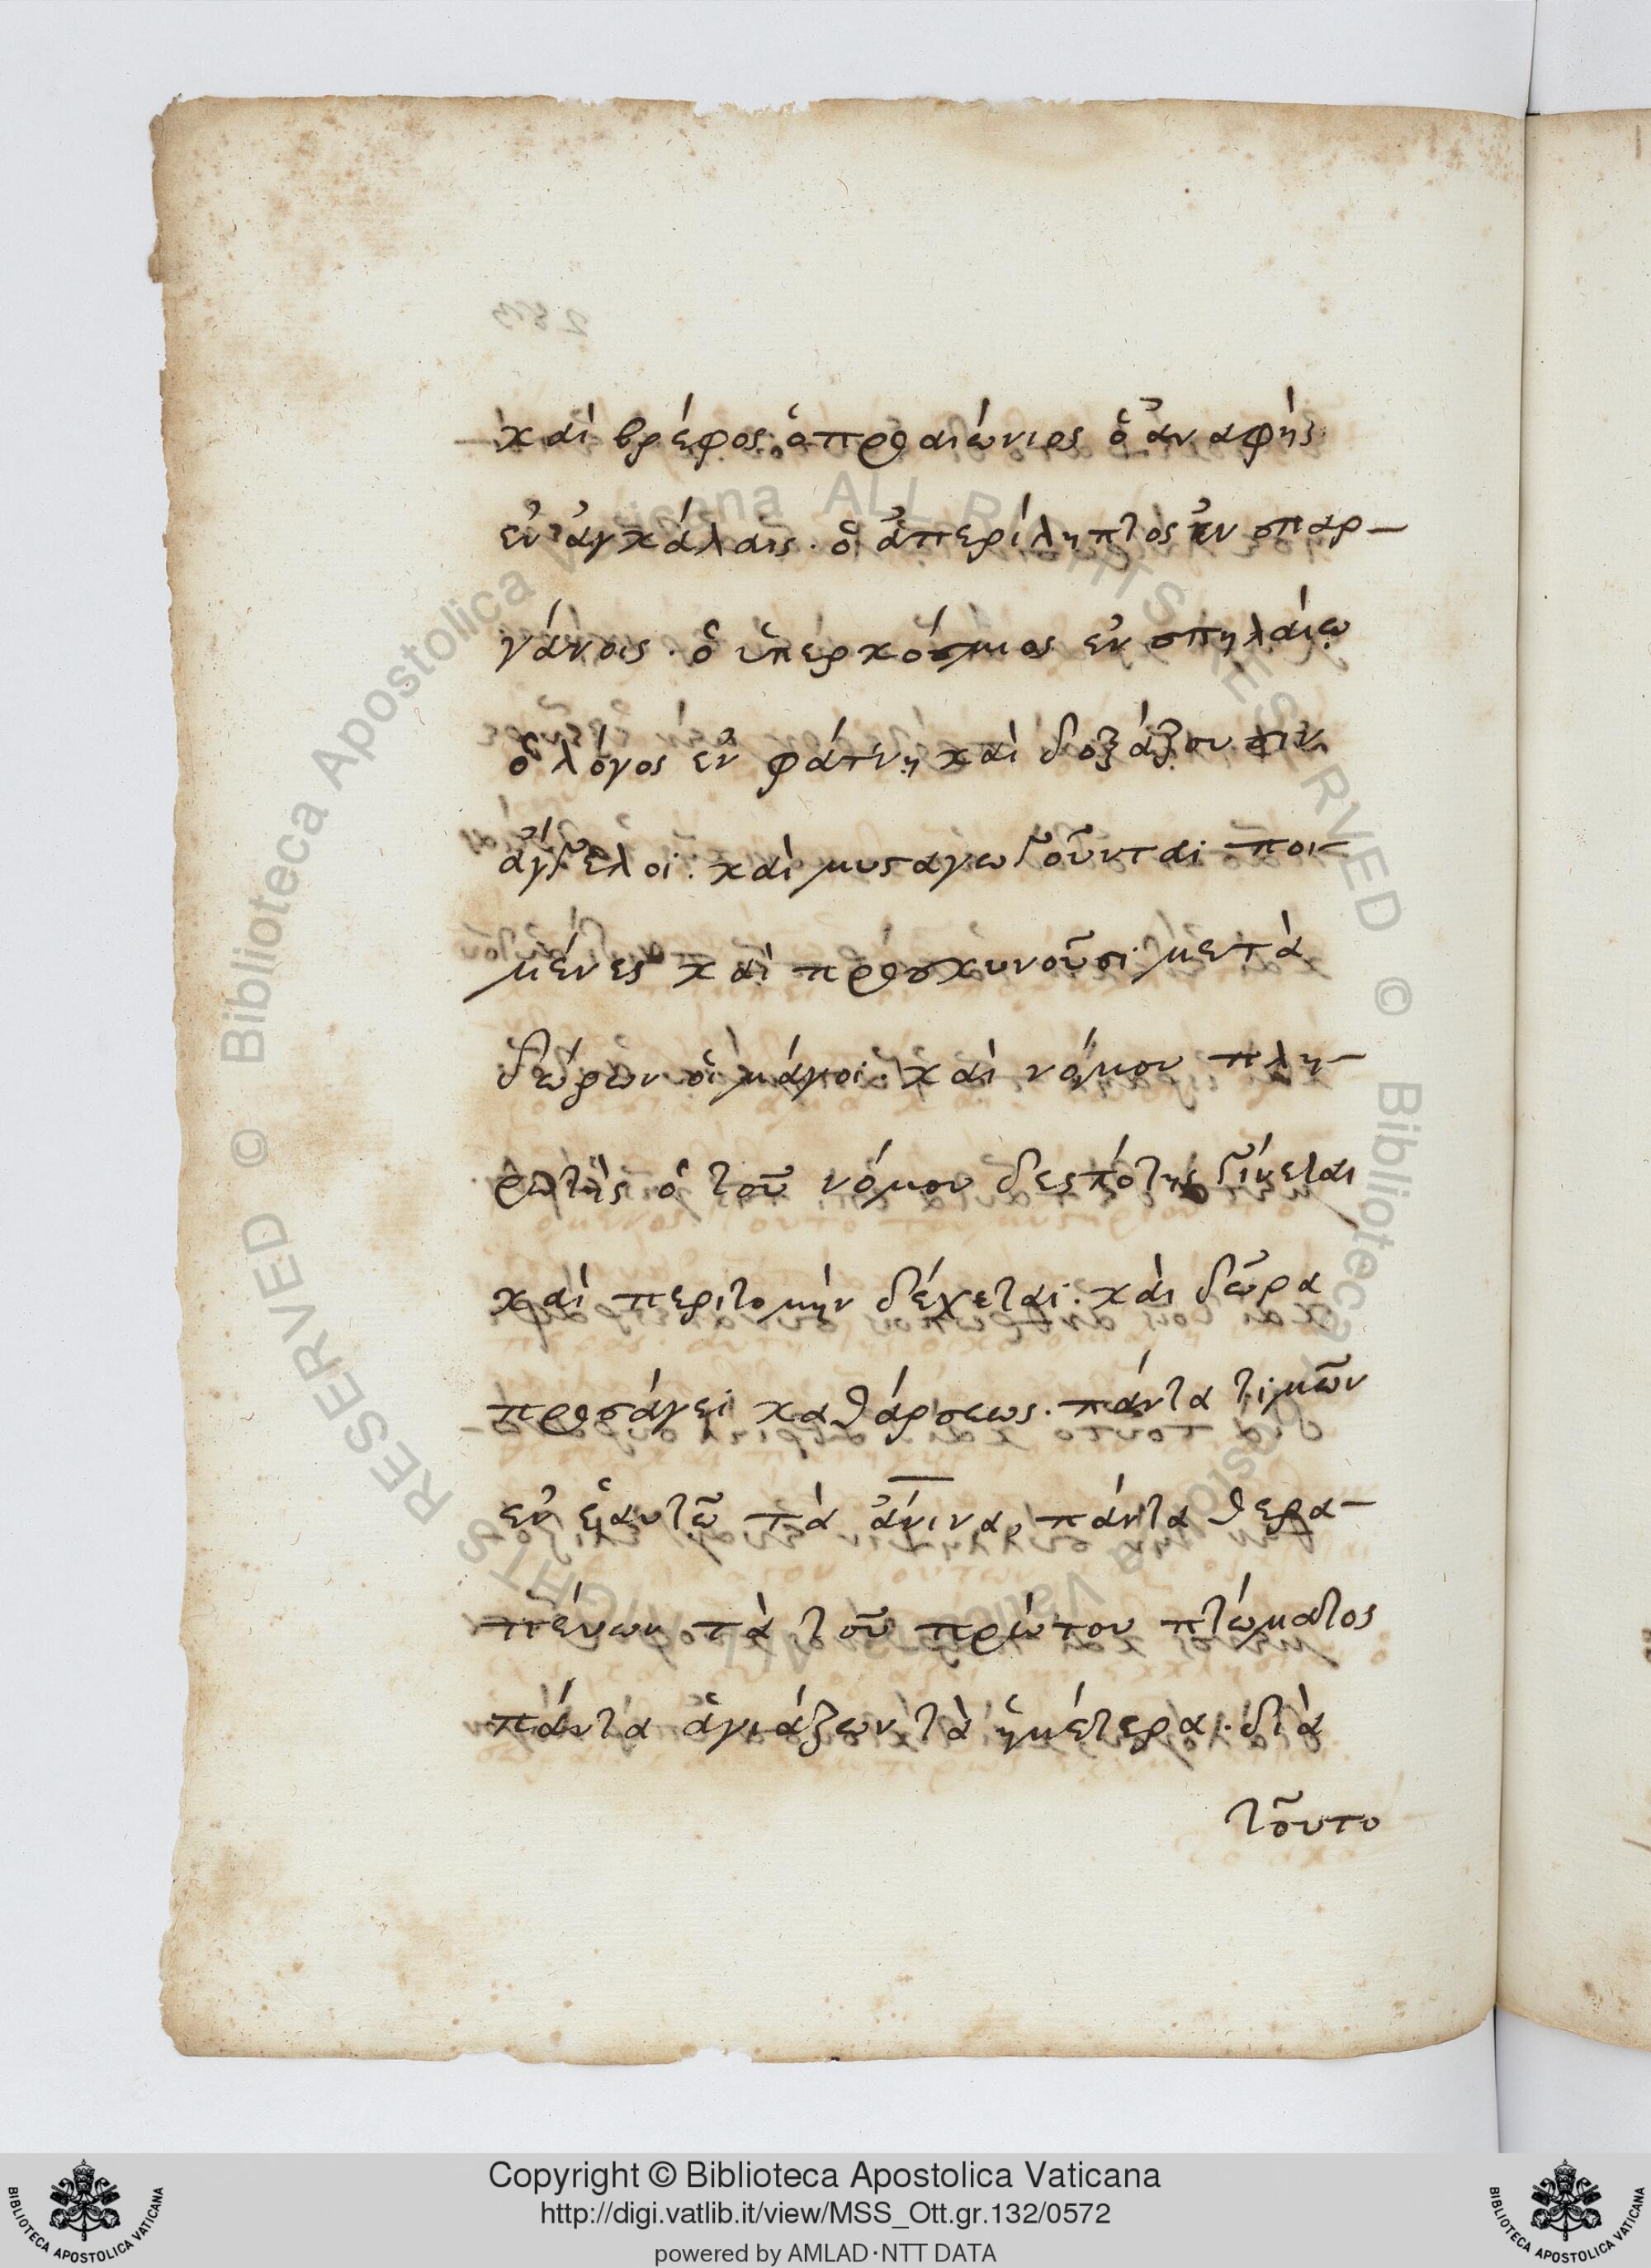 καὶ βρέφος ὁ προαιώνιος ὁ ἀναφὴς
ἐν ἀγκάλαις· ὁ ἀπερίληπτος ἐν σπαρ-
γάνοις· ὁ ὑπερκόσμιος ἐν σπηλαίω
ὁ λόγος ἐν φάτνη καὶ δοξάζουσιν
ἄγγελοι· καὶ μυσταγωγοῦνται ποι-
μένες καὶ προσκυνοῦσι μετὰ
δώρων οἱ μάγοι· καὶ νόμου πλη-
ρωτὴς ὁ τοῦ νόμου δεσπότης γίνεται
καὶ περιτομὴν δέχεται· καὶ δῶρα
προσάγει καθάρσεως· πάντα τιμῶν
ἐν ἑαυτῶ τὰ ἀνινα, πάντα θερα-
πέυων τὰ τοῦ πρώτου πτώματος
πάντα ἁγιάζων τὰ ἡμέτερα· διὰ
τοῦτο
Copyright © Biblioteca Apostolica Vaticana
http://digi.vatlib.it/view/MSS_Ott.gr.132/0572
powered by AMLAD·NTT DATA
BIBLIOTECA APOSTOLICA VATICANA
BIBLIOTECA APOSTOLICA VATICANA
© Biblioteca Apostolica Vaticana ALL RIGHTS RESERVED
© Biblioteca Apostolica Vaticana ALL RIGHTS RESERVED